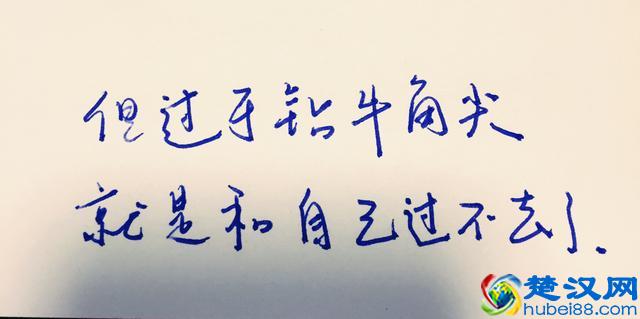 但过于钻牛角尖
就是和自己过不去了.
楚汉网
hubei88.com